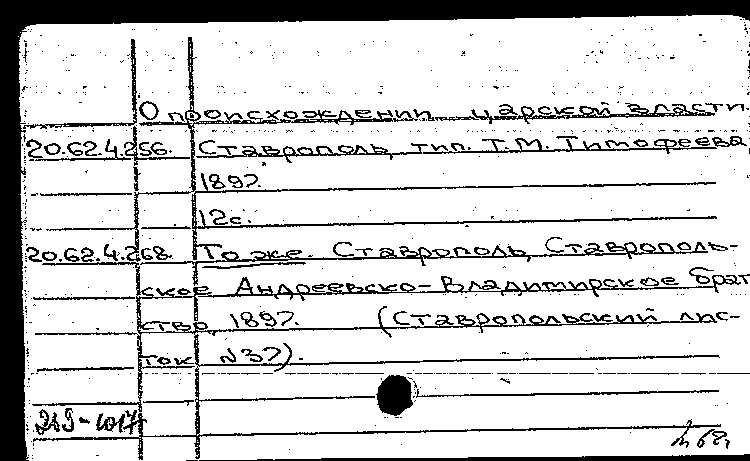 О происхождении царской власти.
20.62.4.256. Ставрополь, тип. Т.М. Тимофеева,
1897.
12с.
20.62.4.268. То же. Ставрополь, Ставрополь-
ское Андреевско-Владимирское брат
ство, 1897. (Ставропольский лис-
ток №37).